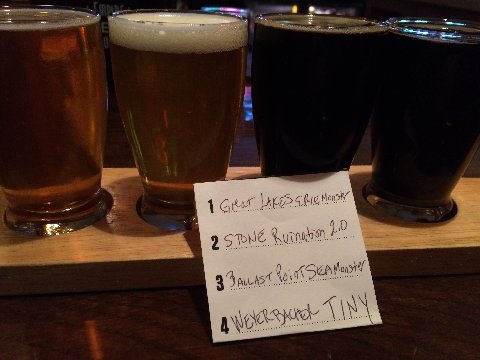 1 Great LAKES ERIE Monster
2 STONE Ruination 2.0
3 BALLAST POINT SEA Monster
4 WEYERBACHER TINY